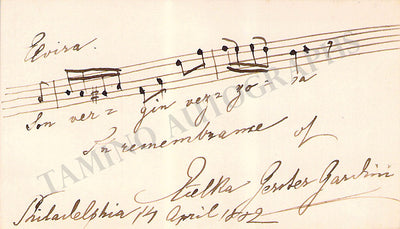 Elvira.
Son ver= gin vez= zo sa
In remembrance of
Etelka Gerster Gardini
Philadelphia 14 April 1882
TAMINO AUTOGRAPHS